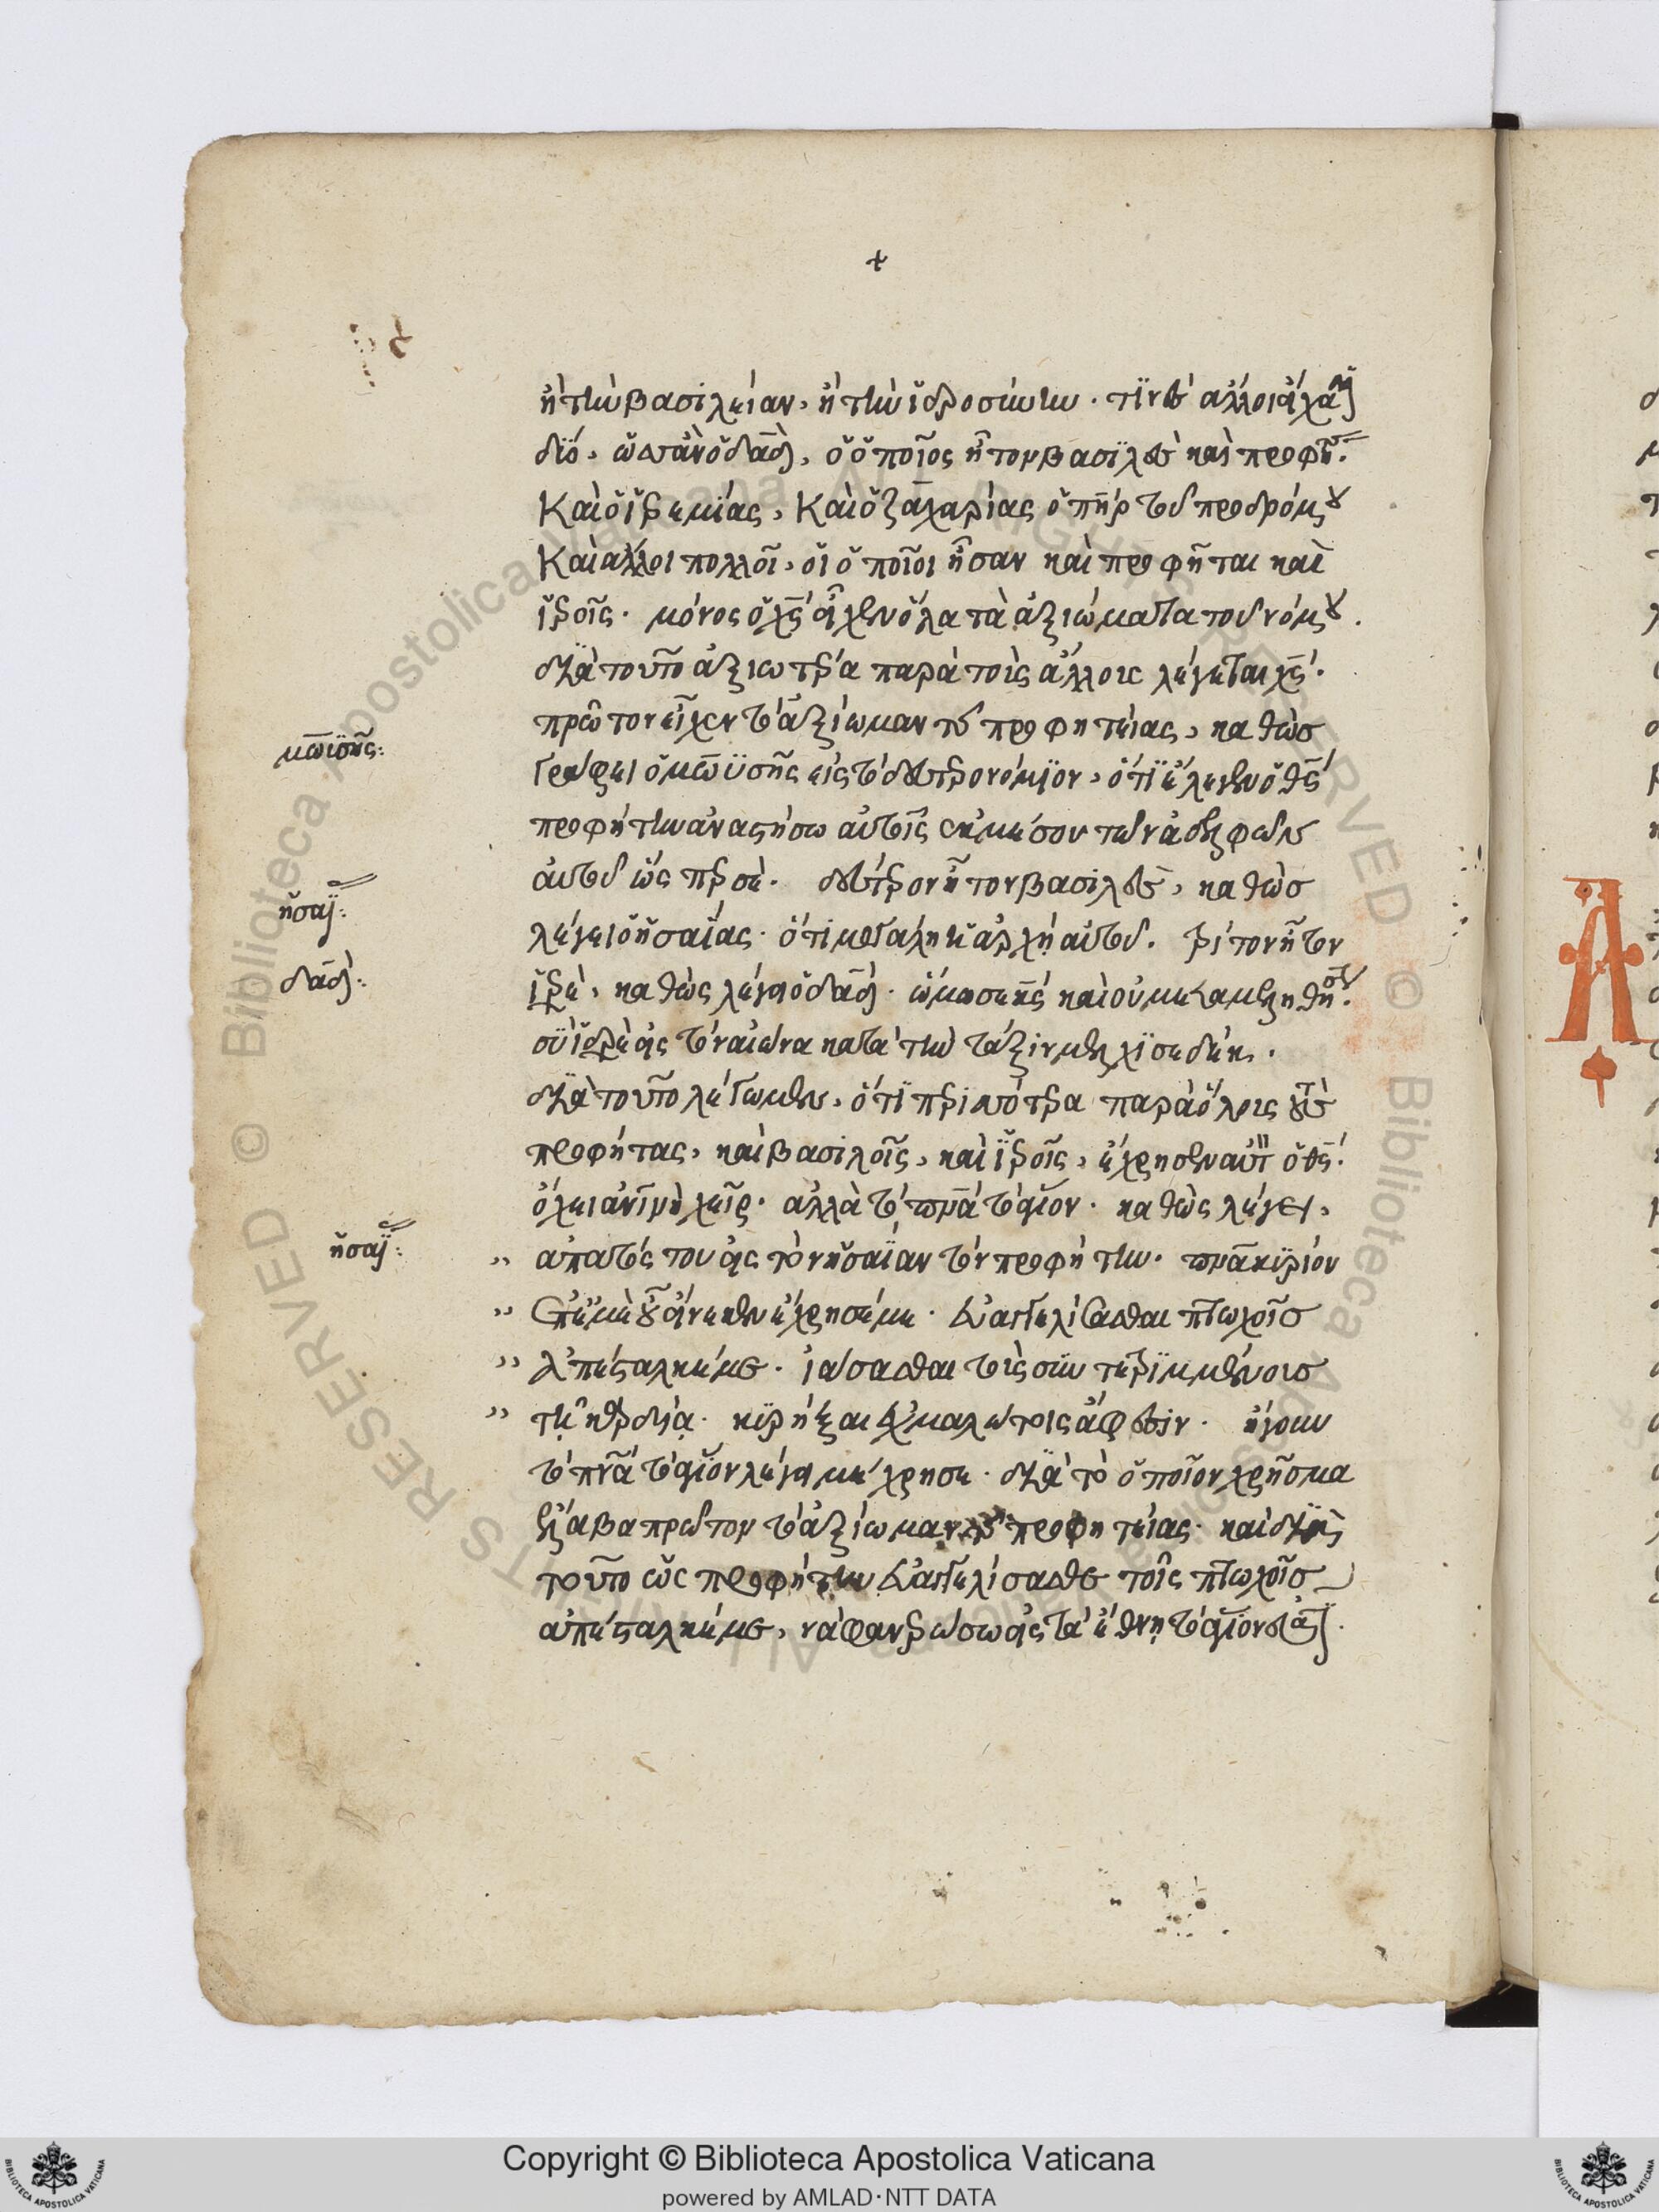 +
ἢ τὴν βασιλείαν, ἢ τὴν ἱεροσύνην. τινὲς ἄλλοι εἴχασι
δύο, ὡσὰν ὁ δαδ, ὁ ὁποῖος ἦτον βασιλεὺς καὶ προφή.
Καὶ ὁ ἱερεμίας, Καὶ ὁ ζαχαρίας ὁ πηρ τοῦ προδρόμου
Καὶ ἄλλοι πολλοῖ, οἱ ὁποῖοι ἦσαν καὶ προφῆται καὶ
ἱεροῖς. μόνος ὁ χς εἶχεν ὅλα τὰ ἀξιώματα τοῦ νόμου.
διὰ τοῦτο ἀξιωτέρα παρὰ τοὶς ἄλλοις λέγεται χς.
πρῶτον εἶχεν τὸ ἀξίωμαν τῆς προφητείας, καθὼσ
γράφει ὁ μωϋσῆς εἰς τὸ δευτερονόμιον, ὅτι ἔλεγεν ὁ θς
μωϊσῆς:
προφήτην ἀναστήσω αὐτοῖς ἐκ μέσου τῶν ἀδελφῶν
αὐτοῦ ὡς περ σέ. δεύτερον ἦτον βασιλεὺς, καθὼσ
ἠσαΐ:
λέγει ὁ ἠσαΐας. ὅτι μεγάλη ἡ ἀρχὴ αὐτοῦ. τρίτον ἦτον
δαδ:
ἱερεὺ, καθὼς λέγει ὁ δαδ. ὤμοσε κς καὶ οὐ μεταμεληθή.
σὺ ἱερεὺς εἰς τὸν αἰῶνα κατὰ τὴν τάξιν μελχισεδέκ.
διὰ τοῦτο λέγωμεν, ὅτι περισσότερα παρὰ ὅλοις τοὺς
προφήτας, καὶ βασιλοῖς, καὶ ἱεροῖς, ἔχρησεν αὐτὸν ὁ θς.
ὄχει ἀνοι χεῖρ. ἀλλὰ τὸ πνα τὸ ἅγιον. καθὼς λέγει,
ἠσαΐ:
,, ἀπατός του εἰς τὸν ἠσαΐαν τὸν προφήτην. πνα κυρίου
,, ἐπ' ἐμὲ οὗ εἵνεκεν ἔχρησέ με. εὐαγγελίσασθαι πτωχοῖσ
,, ἀπέσταλκέ με. ἰάσασθαι τοὶς συντετριμμένοισ
,, τῇ καρδίᾳ. κυρήξαι αἰχμαλώτοις ἄφεσιν. ἤγουν
τὸ πνα τὸ ἅγιον λέγει μὲ χρησε. διὰ τὸ ὁποῖον χρῆσμα
ἔλαβα πρῶτον τὸ ἀξίωμαν τῆς προφητείας. καὶ διὰ
τοῦτο ὡς προφήτην εὐαγγελίσασθε τοῖς πτωχοῖσ
ἀπέσταλκέ με, νὰ φανερώσω εἰς τὰ ἔθνη τὸ ἅγιον